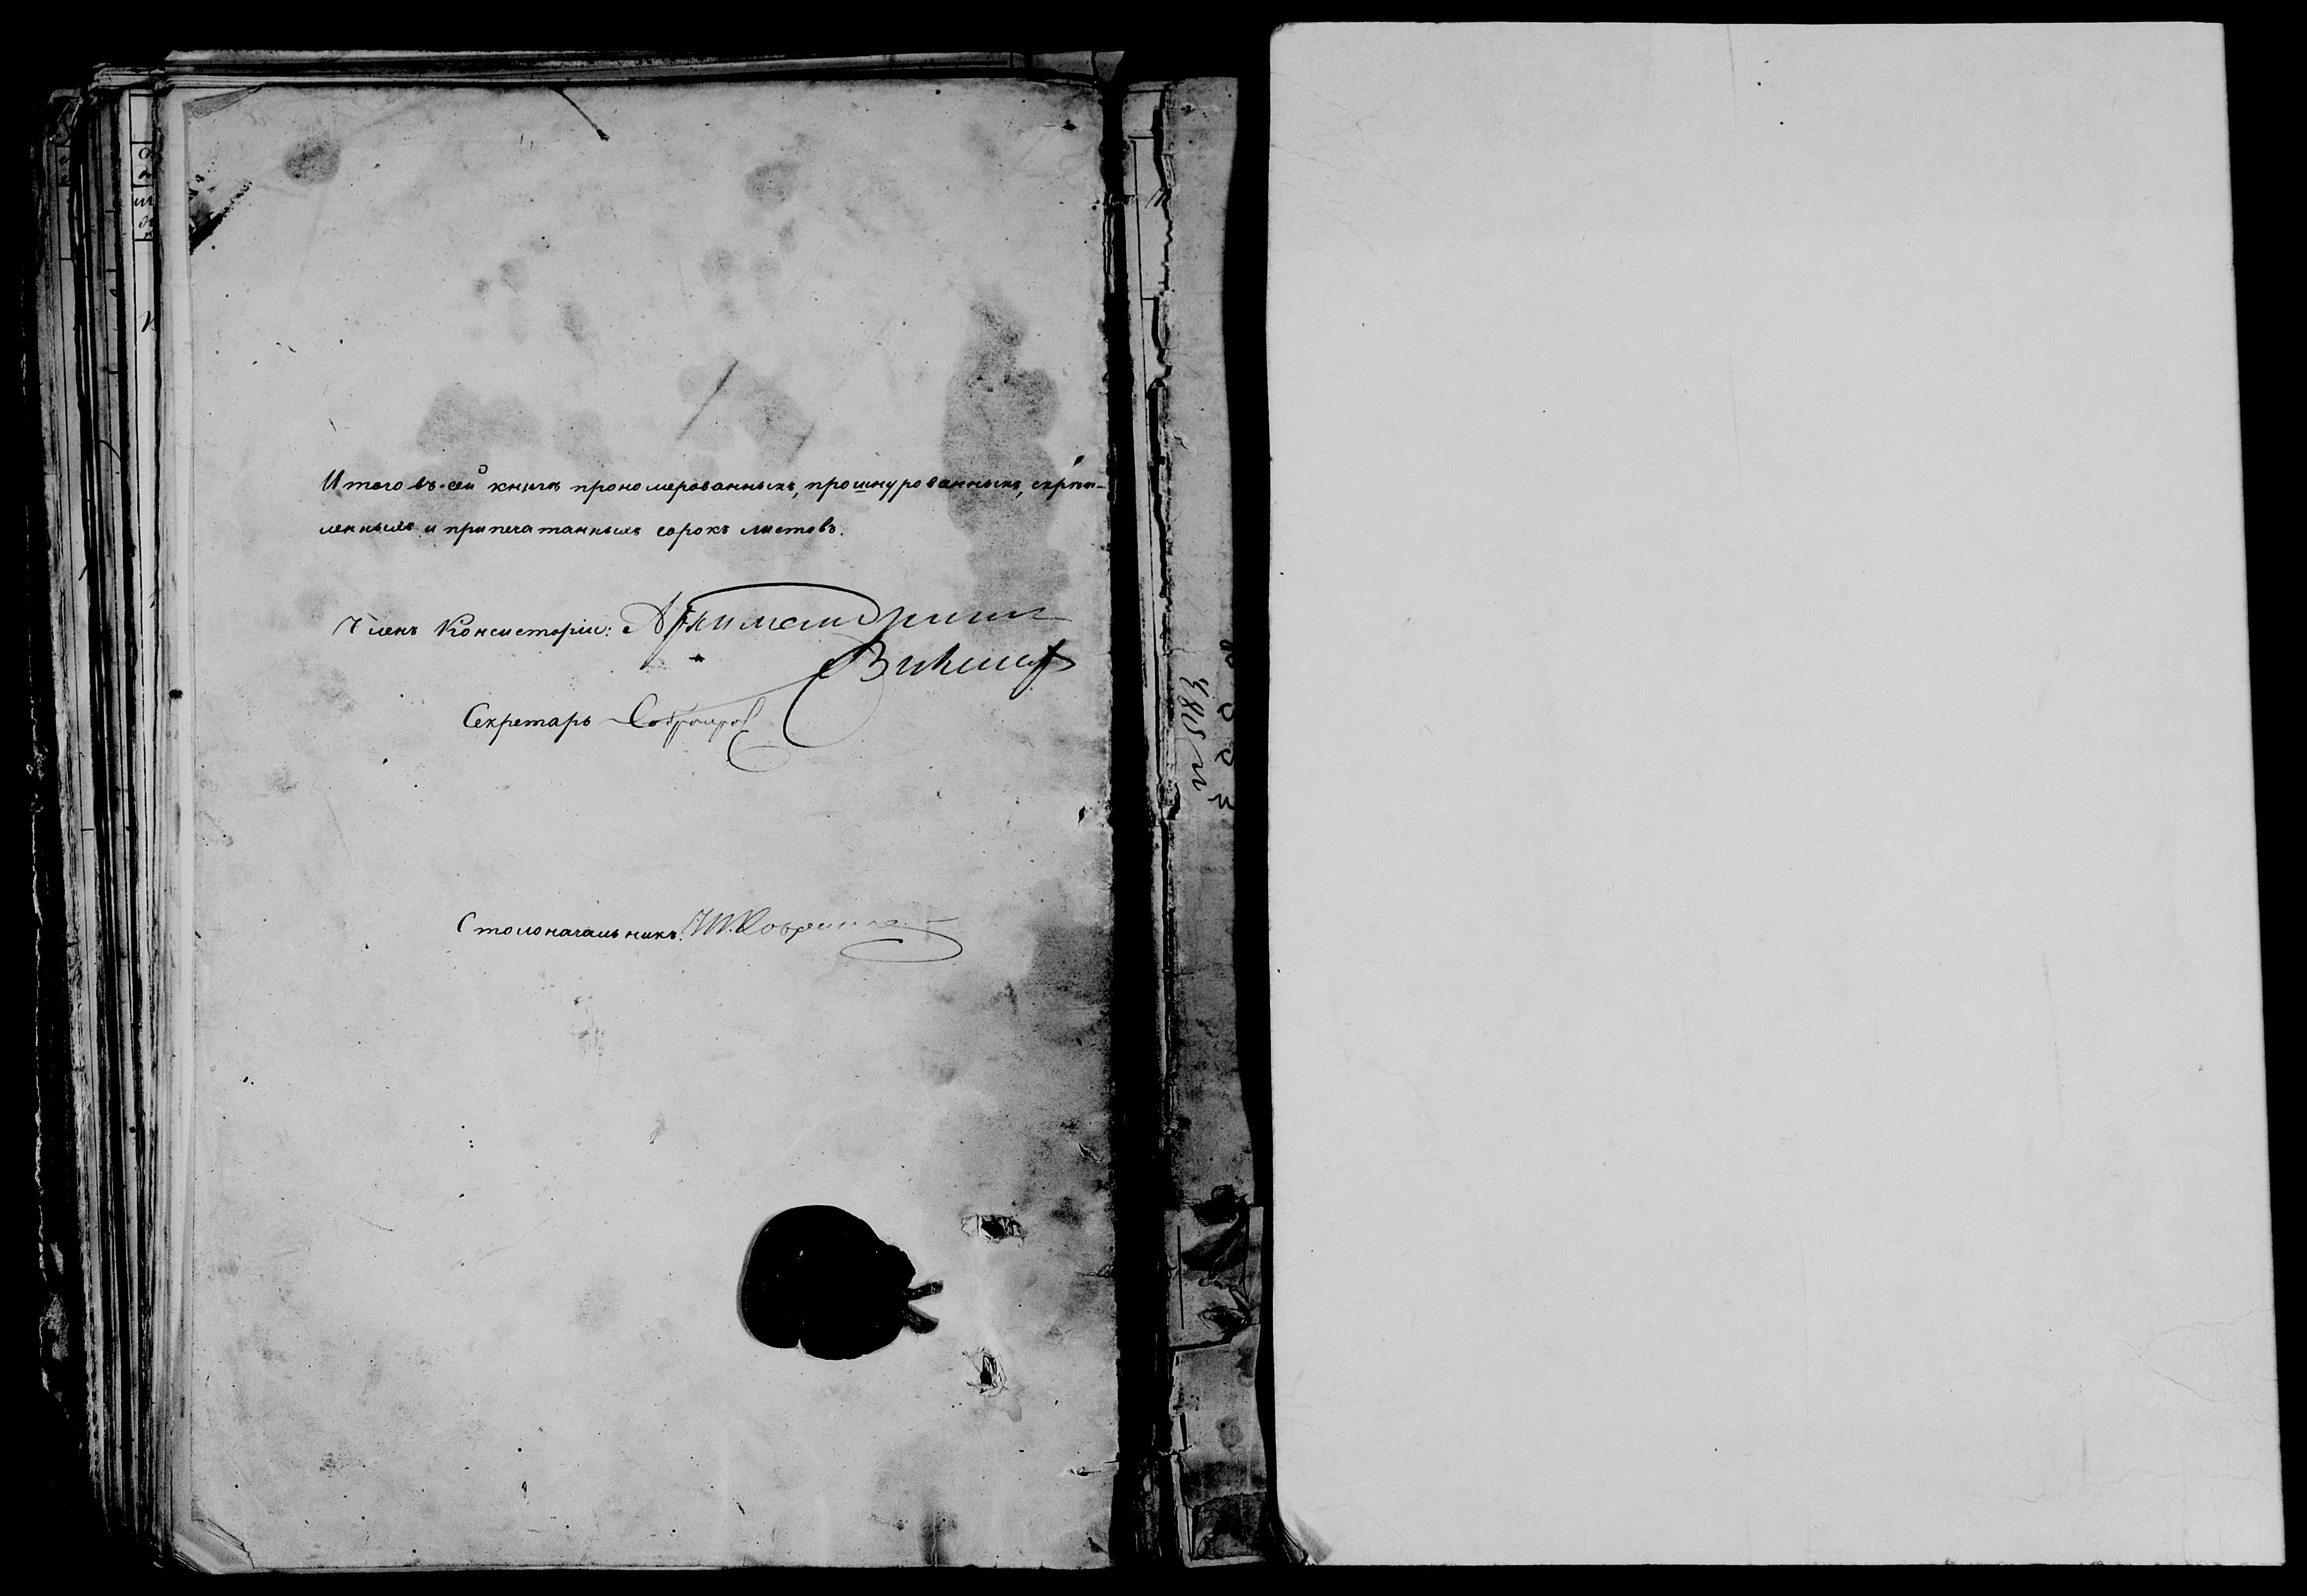 Итого въ сей книгѣ прономерованныхъ, прошнурованныхъ, скрѣп-
ленныхъ и припечатанныхъ сорокъ листовъ.
Членъ Консисторіи: Архимандритъ
Секретарь
Столоначальникъ: